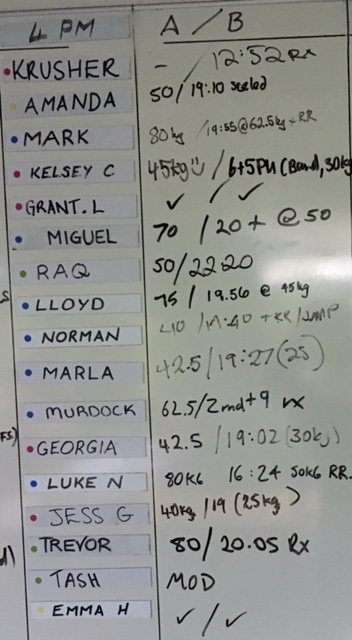 4 PM A / B
KRUSHER - / 12:52 Rx
AMANDA 50/19:10 scaled
MARK 80kg / 19:55@62.5kg + RR
KELSEY C 45kg / 6+5PU (Band, 30kg
GRANT.L ✓ / ✓
MIGUEL 70 / 20+ @ 50
RAQ 50/22:20
S LLOYD 75 / 19.56 @ 45kg
NORMAN + RR /JUMP
MARLA 42.5/19:27(25)
MURDOCK 62.5/2rnd+9 rx
FS) GEORGIA 42.5 / 19:02 (30kg)
LUKE N 80KG 16:24 50KG RR.
JESS G 40kg /19 (25kg)
TREVOR 80/20.05 Rx
TASH MOD
EMMA H ✓ / ✓